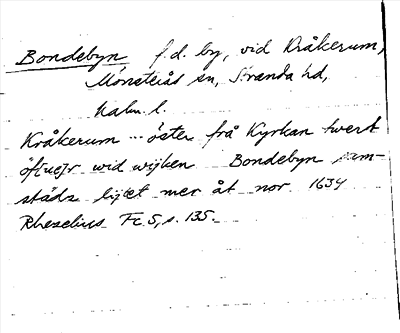 Bondebyn, f.d. by, vid Kråkerum,
Mönsterås sn, Stranda hd,
Kalm. l.
Kråkerum -- öster frå Kyrkan twert
öf[ue]r wid wijken Bondebyn sam-
städz lijtet mer åt nor 1634
Rhezelius Fc5, s. 135.